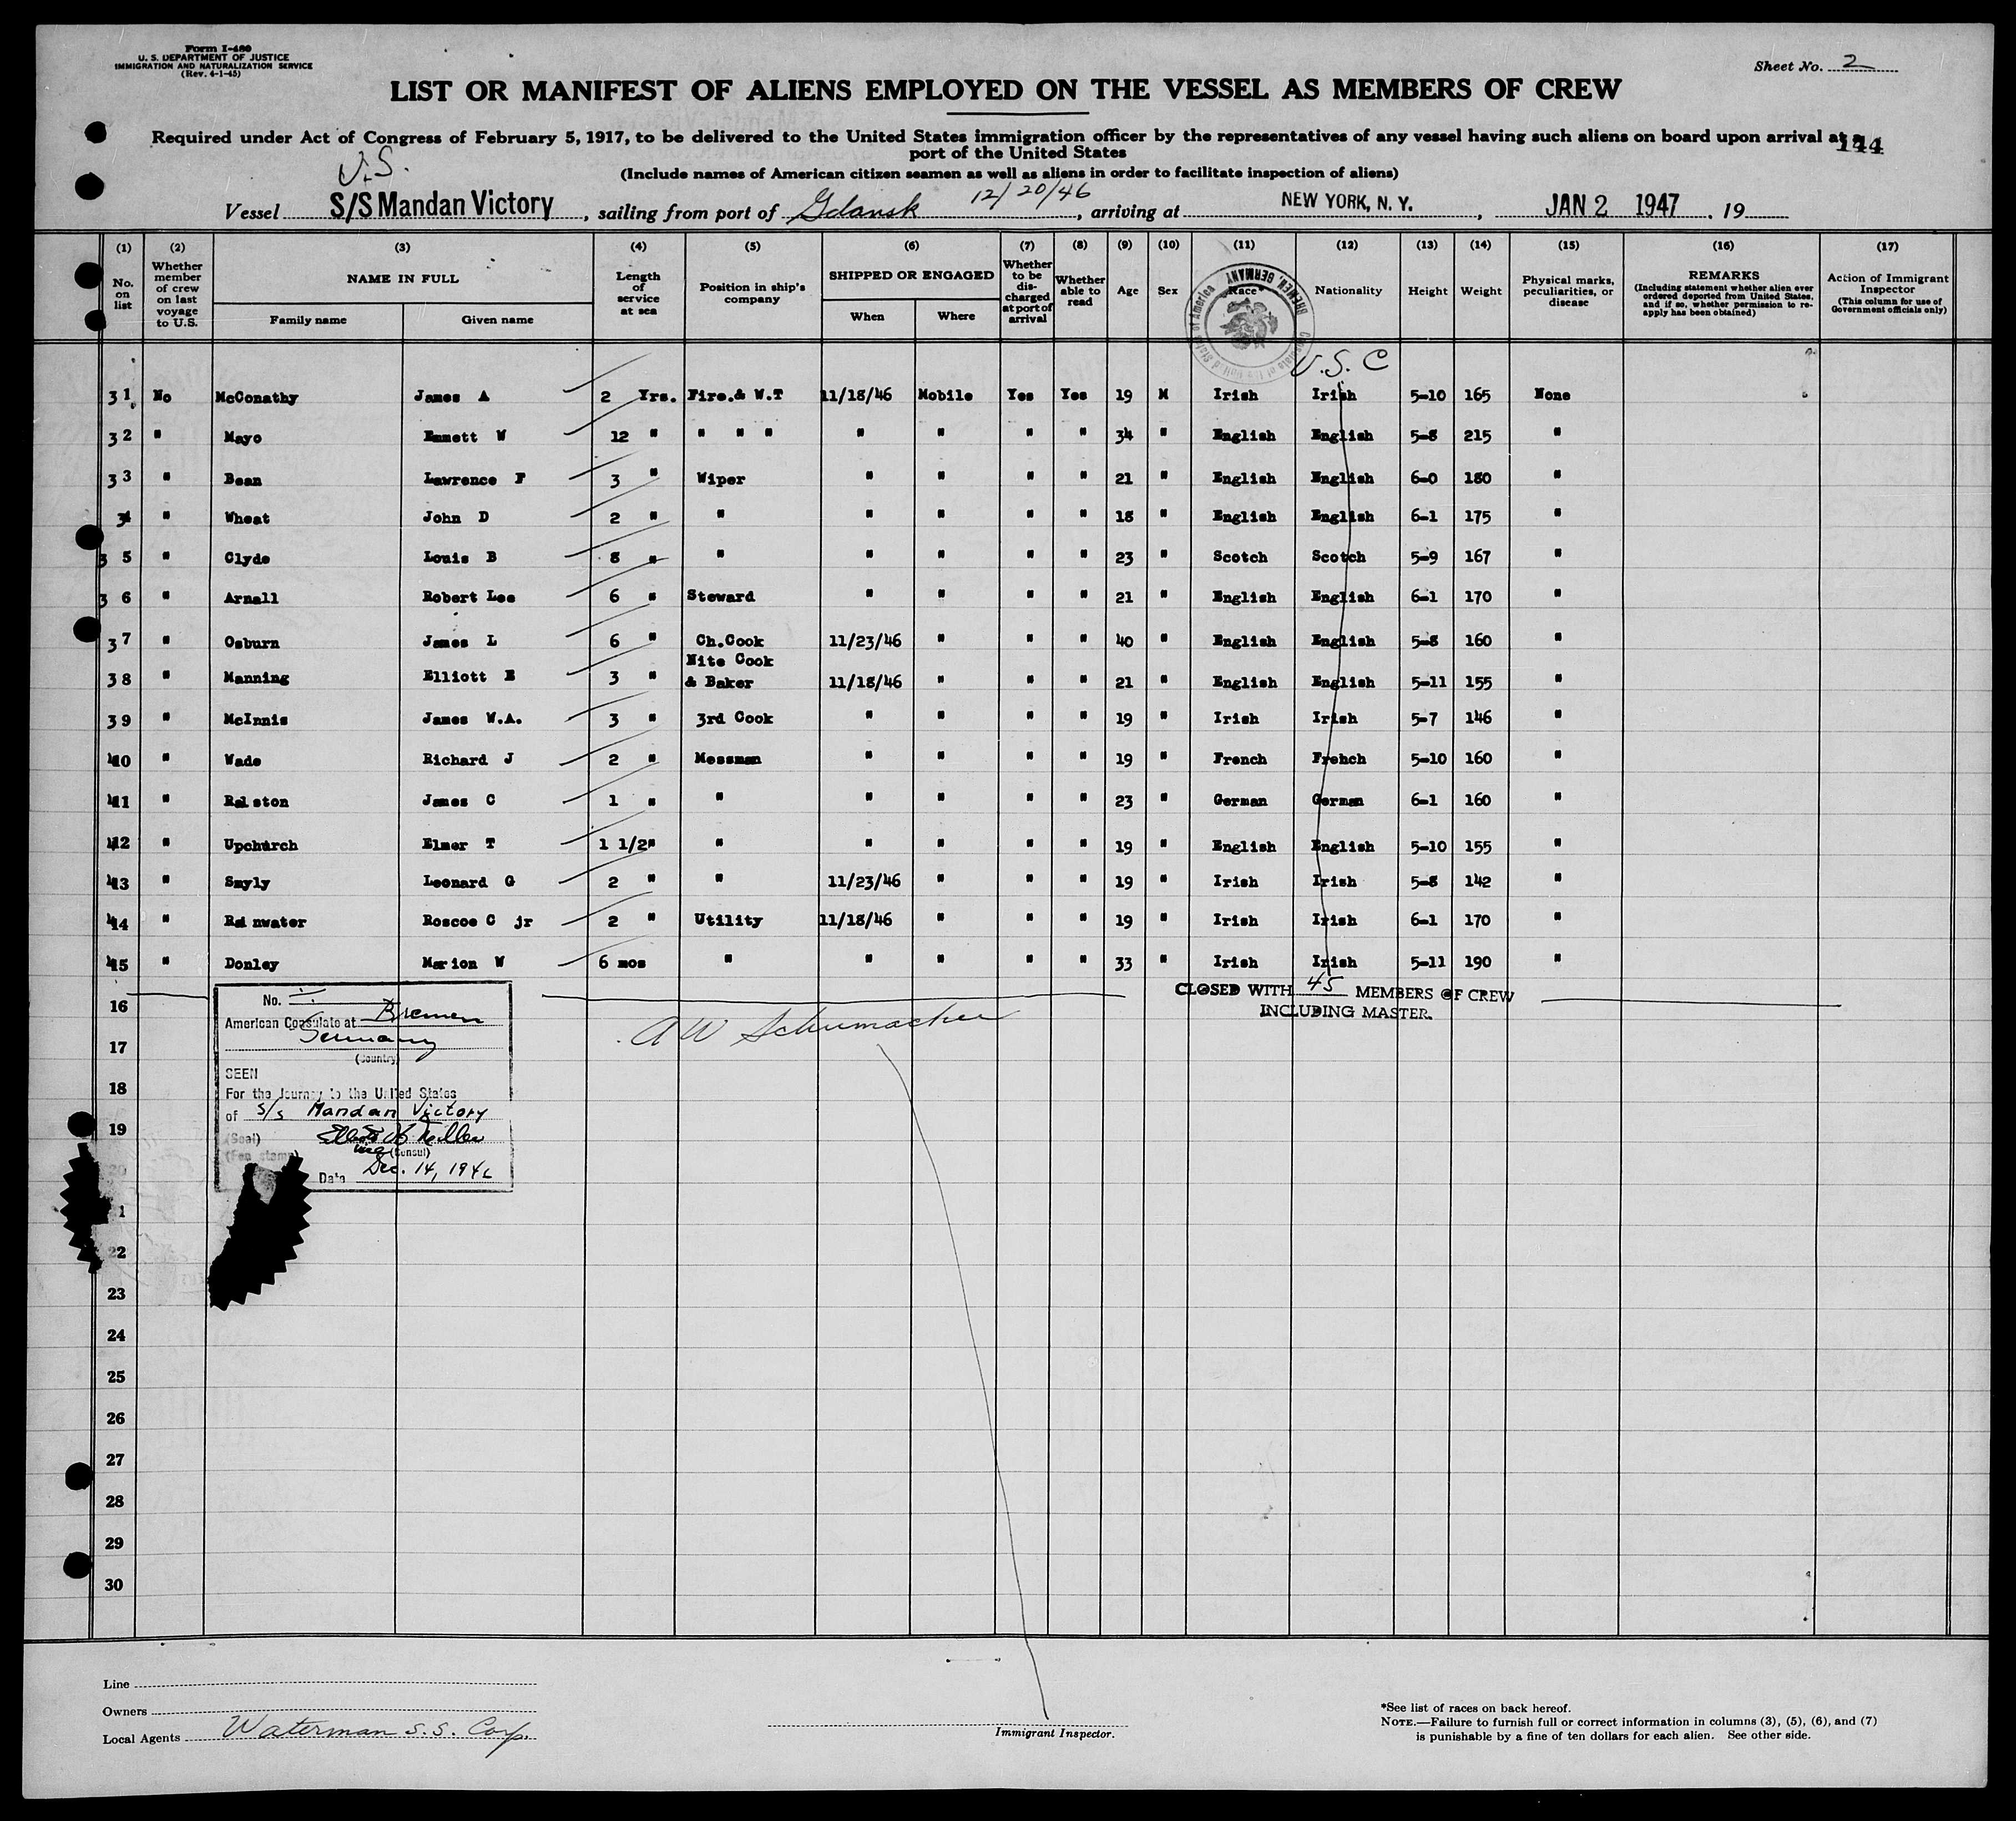 Form I-480
U. S. DEPARTMENT OF JUSTICE
IMMIGRATION AND NATURALIZATION SERVICE
(Rev. 4-1-45)
Sheet No. 2
LIST OR MANIFEST OF ALIENS EMPLOYED ON THE VESSEL AS MEMBERS OF CREW
Required under Act of Congress of February 5, 1917, to be delivered to the United States immigration officer by the representatives of any vessel having such aliens on board upon arrival at a
port of the United States
144
(Include names of American citizen seamen as well as aliens in order to facilitate inspection of aliens)
U.S.
Vessel S/S Mandan Victory, sailing from port of Gdansk 12/20/46, arriving at NEW YORK, N. Y., JAN 2 1947, 19
(1) (2) (3) (4) (5) (6) (7) (8) (9) (10) (11) (12) (13) (14) (15) (16) (17)
No. on list
Whether member of crew on last voyage to U.S.
NAME IN FULL
Family name
Given name
Length of service at sea
Position in ship's company
SHIPPED OR ENGAGED
When
Where
Whether to be discharged at port of arrival
Whether able to read
Age
Sex
Race
Nationality
Height
Weight
Physical marks, peculiarities, or disease
REMARKS
(Including statement whether alien ever ordered deported from United States, and if so, whether permission to reapply has been obtained)
Action of Immigrant Inspector
(This column for use of Government officials only)
BREMEN, GERMANY
U.S.C
31 No McConathy James A 2 Yrs. Fire.& W.T 11/18/46 Mobile Yes Yes 19 M Irish Irish 5-10 165 None
32 " Mayo Emmett W 12 " " " " " " " " 34 " English English 5-8 215 "
33 " Bean Lawrence F 3 " Wiper " " " " 21 " English English 6-0 180 "
34 " Wheat John D 2 " " " " " " 18 " English English 6-1 175 "
35 " Clyde Louis B 8 " " " " " " 23 " Scotch Scotch 5-9 167 "
36 " Arnall Robert Lee 6 " Steward " " " " 21 " English English 6-1 170 "
37 " Osburn James L 6 " Ch.Cook 11/23/46 " " " 40 " English English 5-8 160 "
38 " Manning Elliott E 3 " Nite Cook & Baker 11/18/46 " " " 21 " English English 5-11 155 "
39 " McInnis James W.A. 3 " 3rd Cook " " " " 19 " Irish Irish 5-7 146 "
40 " Wade Richard J 2 " Messman " " " " 19 " French French 5-10 160 "
41 " Ralston James C 1 " " " " " " 23 " German German 6-1 160 "
42 " Upchurch Elmer T 1 1/2" " " " " " 19 " English English 5-10 155 "
43 " Smyly Leonard G 2 " " 11/23/46 " " " 19 " Irish Irish 5-8 142 "
44 " Rainwater Roscoe C jr 2 " Utility 11/18/46 " " " 19 " Irish Irish 6-1 170 "
45 " Donley Marion W 6 mos " " " " " 33 " Irish Irish 5-11 190 "
CLOSED WITH 45 MEMBERS OF CREW
INCLUDING MASTER.
A W Schumacher
No.
American Consulate at Bremen
Germany
(Country)
SEEN
For the Journey to the United States
of S/S Mandan Victory
(Seal)
(Consul)
(Fee stamp)
Date Dec. 14, 1946
16
17
18
19
20
1
22
23
24
25
26
27
28
29
30
Line
Owners
Local Agents Waterman S.S. Corp.
Immigrant Inspector.
*See list of races on back hereof.
NOTE.—Failure to furnish full or correct information in columns (3), (5), (6), and (7)
is punishable by a fine of ten dollars for each alien. See other side.